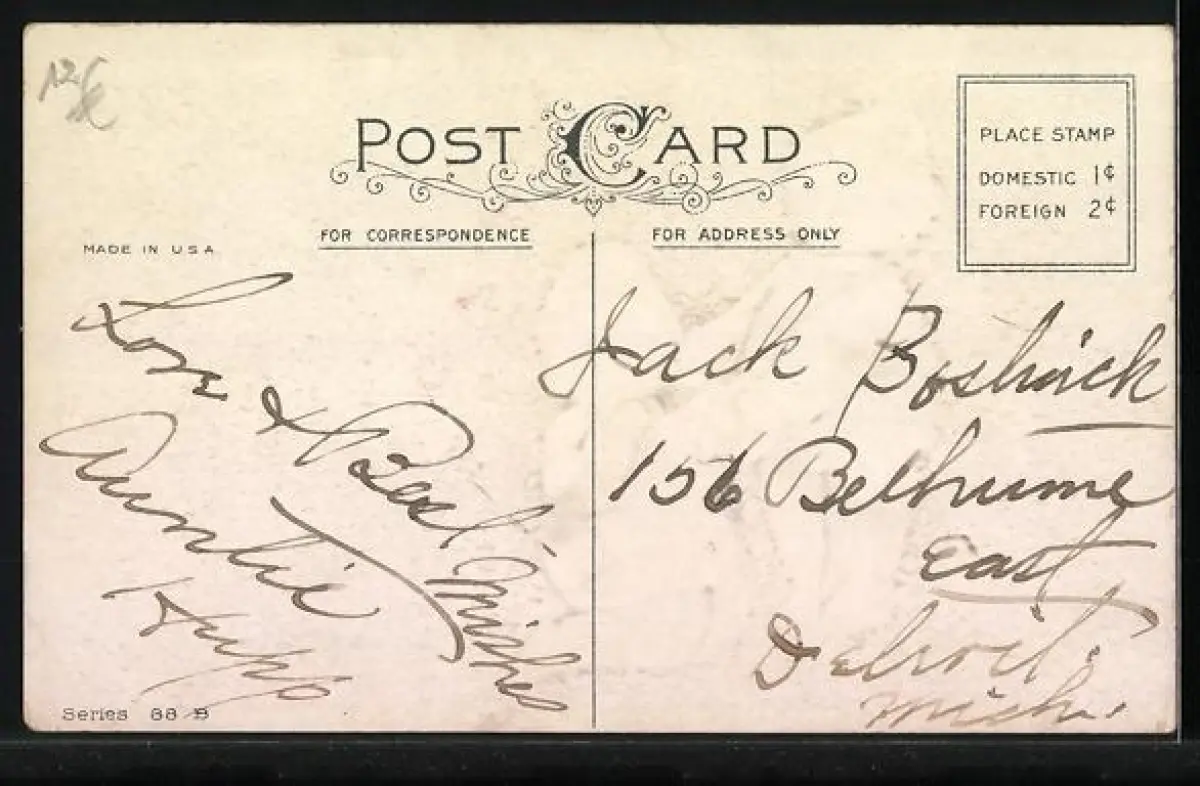 12/
POST CARD
PLACE STAMP
DOMESTIC 1¢
FOREIGN 2¢
FOR CORRESPONDENCE
FOR ADDRESS ONLY
MADE IN U.S.A.
Love
& Best Wishes
Auntie
Jack
156
East
Detroit.
Mich.
Series 88 B